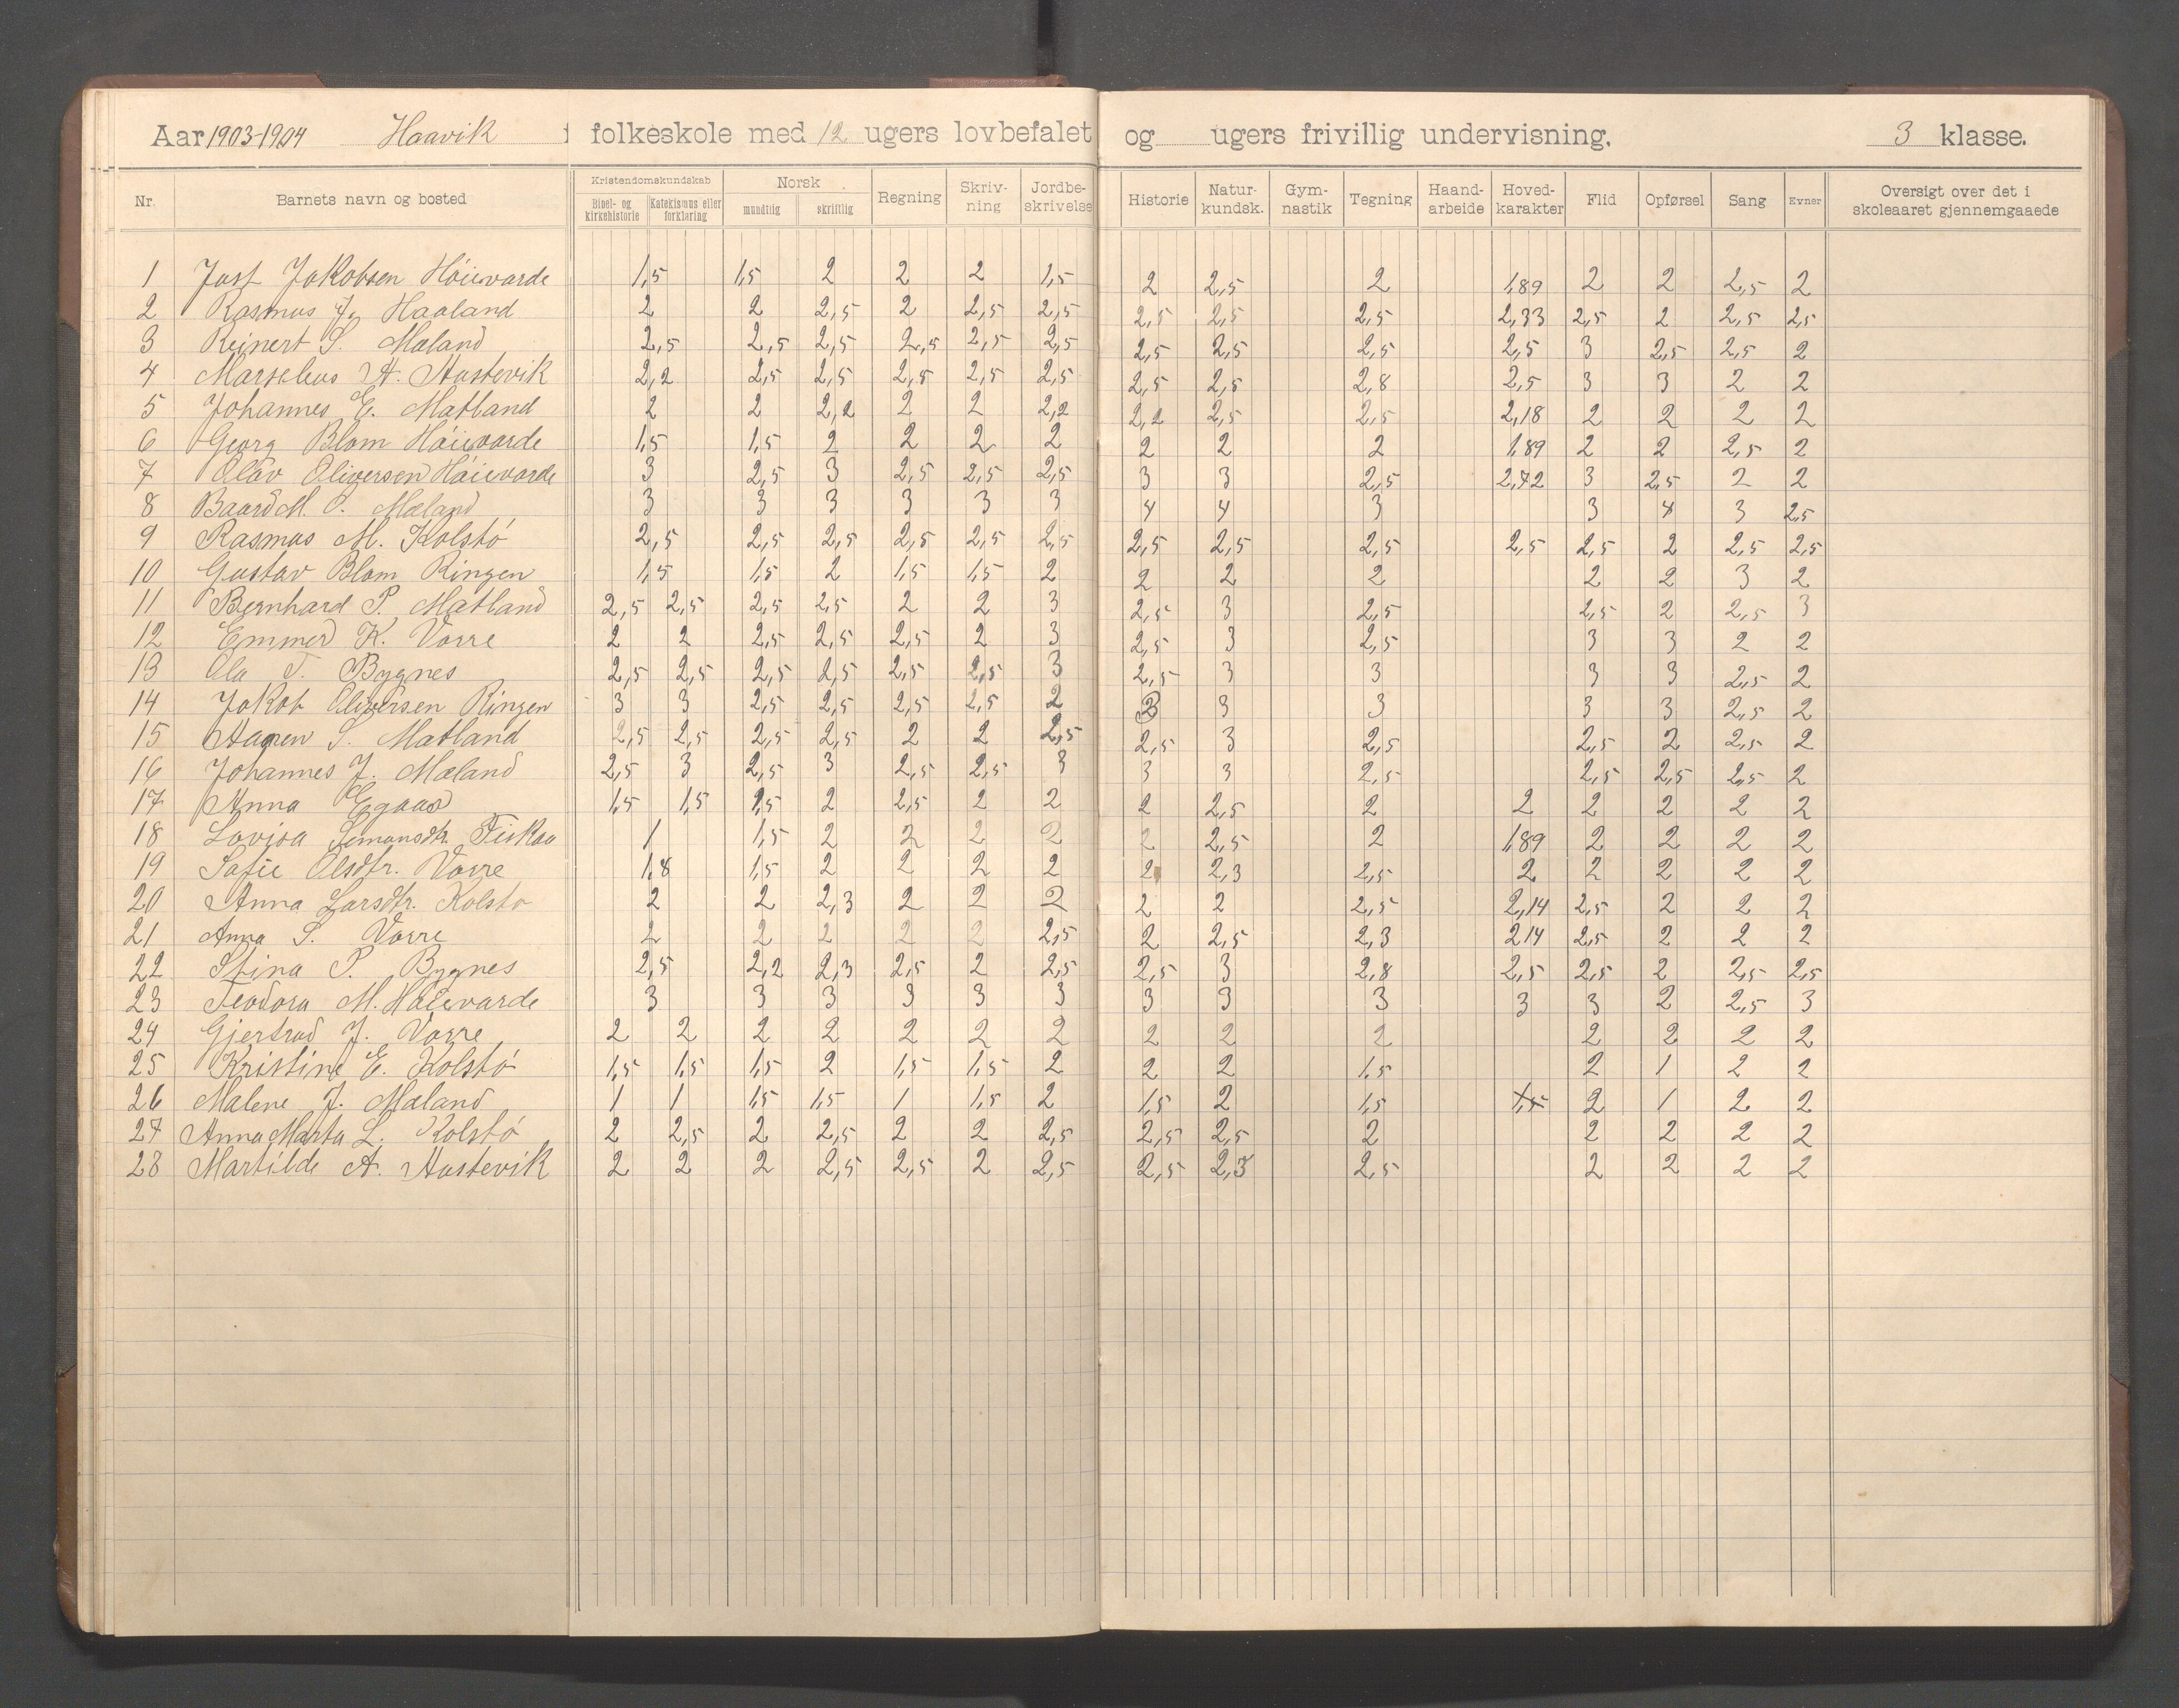 Aar 1903-1904 Haavik i folkeskole med 12 ugers lovbefalet og ugers frivillig undervisning. 3 klasse.
Nr. Barnets navn og bosted Kristendomskundskab Bibel- og kirkehistorie Katekismus eller forklaring Norsk mundtlig skriftlig Regning Skriv-ning Jordbe-skrivelse Historie Natur-kundsk. Gym-nastik Tegning Haand-arbeide Hoved-karakter Flid Opførsel Sang Evner Oversigt over det i skoleaaret gjennemgaaede
1 Jakobsen Höievarde 1,5 1,5 2 2 2 1,5 2 2,5 2 1,89 2 2 2,5 2
2 Rasmus J. Haaland 2 2 2,5 2 2,5 2,5 2,5 2,5 2,5 2,33 2,5 2 2,5 2,5
3 Reinert S. Mæland 2,5 2,5 2,5 2,5 2,5 2,5 2,5 2,5 2,5 2,5 3 2,5 2,5 2
4 Marselius A. Hustevik 2,2 2,5 2,5 2,5 2,5 2,5 2,5 2,5 2,8 2,5 3 3 2 2
5 Johannes E. Matland 2 2 2,2 2 2 2,2 2,2 2,5 2,5 2,18 2 2 2 2
6 Georg Blom Höievarde 1,5 1,5 2 2 2 2 2 2 2 1,89 2 2 2,5 2
7 Olav Oliversen Höievarde 3 2,5 3 2,5 2,5 2,5 3 3 2,5 2,72 3 2,5 2 2
8 Baard M. P. Mæland 3 3 3 3 3 3 4 4 3 3 4 3 2,5
9 Rasmus M. Kolstö 2,5 2,5 2,5 2,5 2,5 2,5 2,5 2,5 2,5 2,5 2,5 2 2,5 2,5
10 Gustav Blom Ringen 1,5 1,5 2 1,5 1,5 2 2 2 2 2 2 3 2
11 Bernhard P. Matland 2,5 2,5 2,5 2,5 2 2 3 2,5 3 2,5 2,5 2 2,5 3
12 Emmer K. Vorre 2 2 2,5 2,5 2,5 2 3 2,5 3 2,5 3 3 2 2
13 Ola T. Bygnes 2,5 2,5 2,5 2,5 2,5 2,5 3 2,5 3 3 3 3 2,5 2
14 Jakob Oliversen Ringen 3 3 2,5 2,5 2,5 2,5 2 3 3 3 3 3 2,5 2
15 S. Matland 2,5 2,5 2,5 2,5 2 2 2,5 2,5 3 2,5 2,5 2 2,5 2
16 Johannes J. Mæland 2,5 3 2,5 3 2,5 2,5 3 3 3 2,5 2,5 2,5 2,5 2
17 Anna Egaas 1,5 1,5 1,5 2 2,5 2 2 2 2,5 2 2 2 2 2 2
18 Lovisa Simonsdtr. Fiskaa 1 1,5 2 2 2 2 2 2,5 2 1,89 2 2 2 2
19 Sofie Olsdtr. Vorre 1,8 1,5 2 2 2 2 2 2,3 2,5 2 2 2 2 2
20 Anna Larsdtr. Kolstö 2 2 2,3 2 2 2 2 2 2,5 2,14 2,5 2 2 2
21 Anna S. Vorre 2 2 2 2 2 2,5 2 2,5 2,3 2,14 2,5 2 2 2
22 Stina P. Bygnes 2,5 2,2 2,3 2,5 2 2,5 2,5 3 2,8 2,5 2,5 2 2,5 2,5
23 Teodora M. Höievarde 3 3 3 3 3 3 3 3 3 3 3 2 2,5 3
24 Gjertrud J. Vorre 2 2 2 2 2 2 2 2 2 2 2 2 2 2
25 Kristine E. Kolstö 1,5 1,5 1,5 2 1,5 1,5 2 2 2 1,5 2 1 2 2
26 Malene J. Mæland 1 1 1,5 1,5 1 1,5 2 1,5 2 1,5 1,5 2 1 2 2
27 Anna Marta L. Kolstö 2 2,5 2 2,5 2 2 2,5 2,5 2,5 2 2 2 2 2
28 Martilde A. Hustevik 2 2 2 2,5 2,5 2 2,5 2,5 2,3 2,5 2 2 2 2